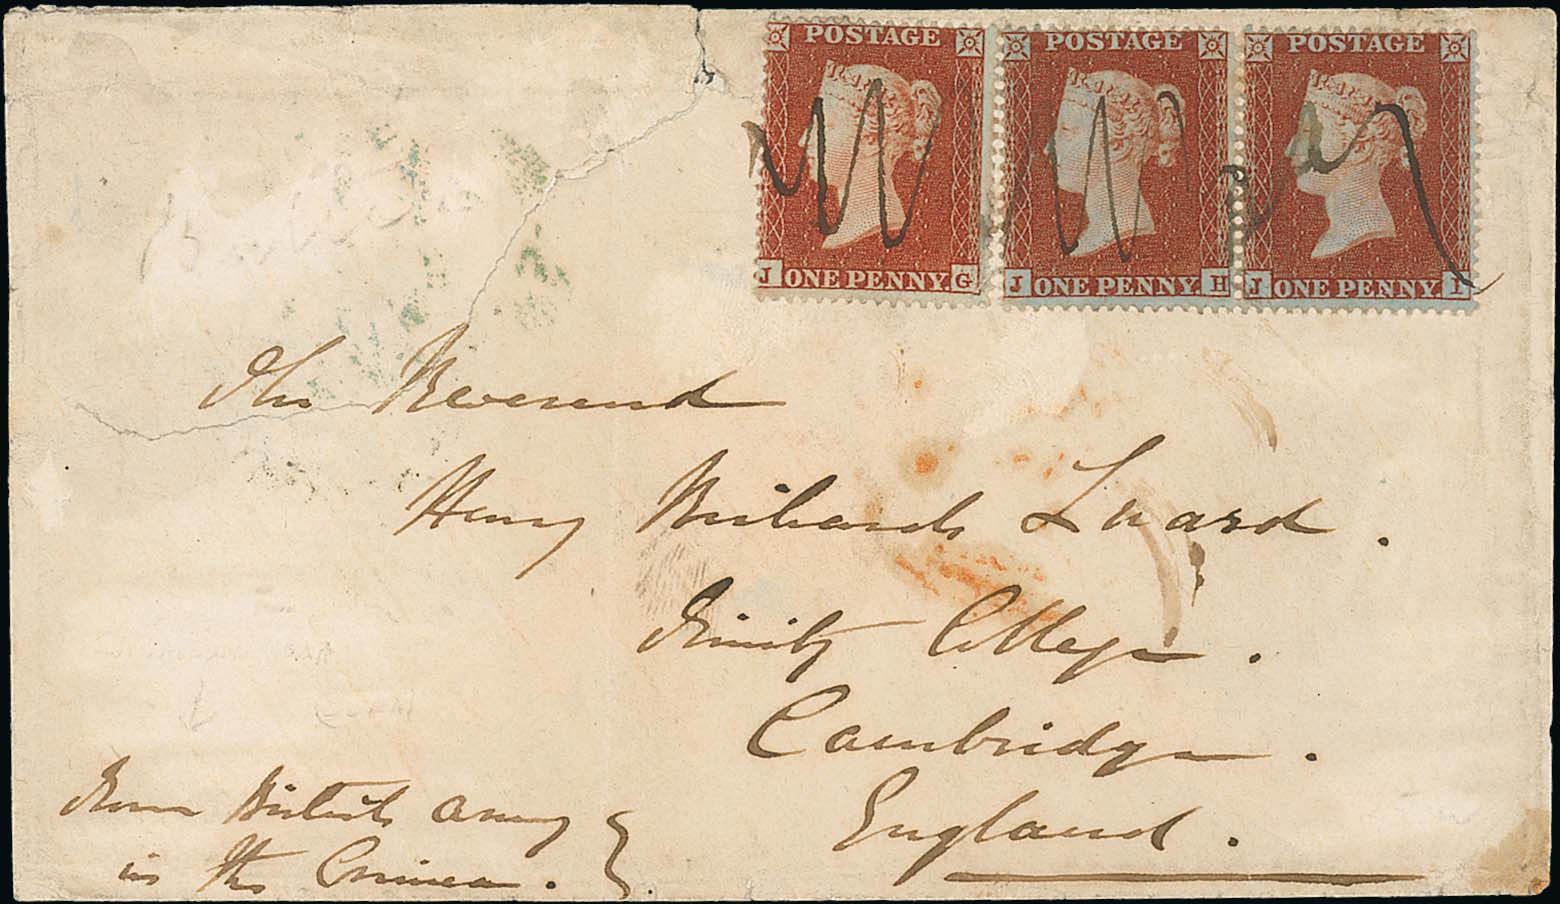 POSTAGE POSTAGE POSTAGE
J ONE PENNY G J ONE PENNY H J ONE PENNY I
The Reverend
Henry Richards Luard.
Trinity College.
Cambridge.
England.
From British Army
in the Crimea.